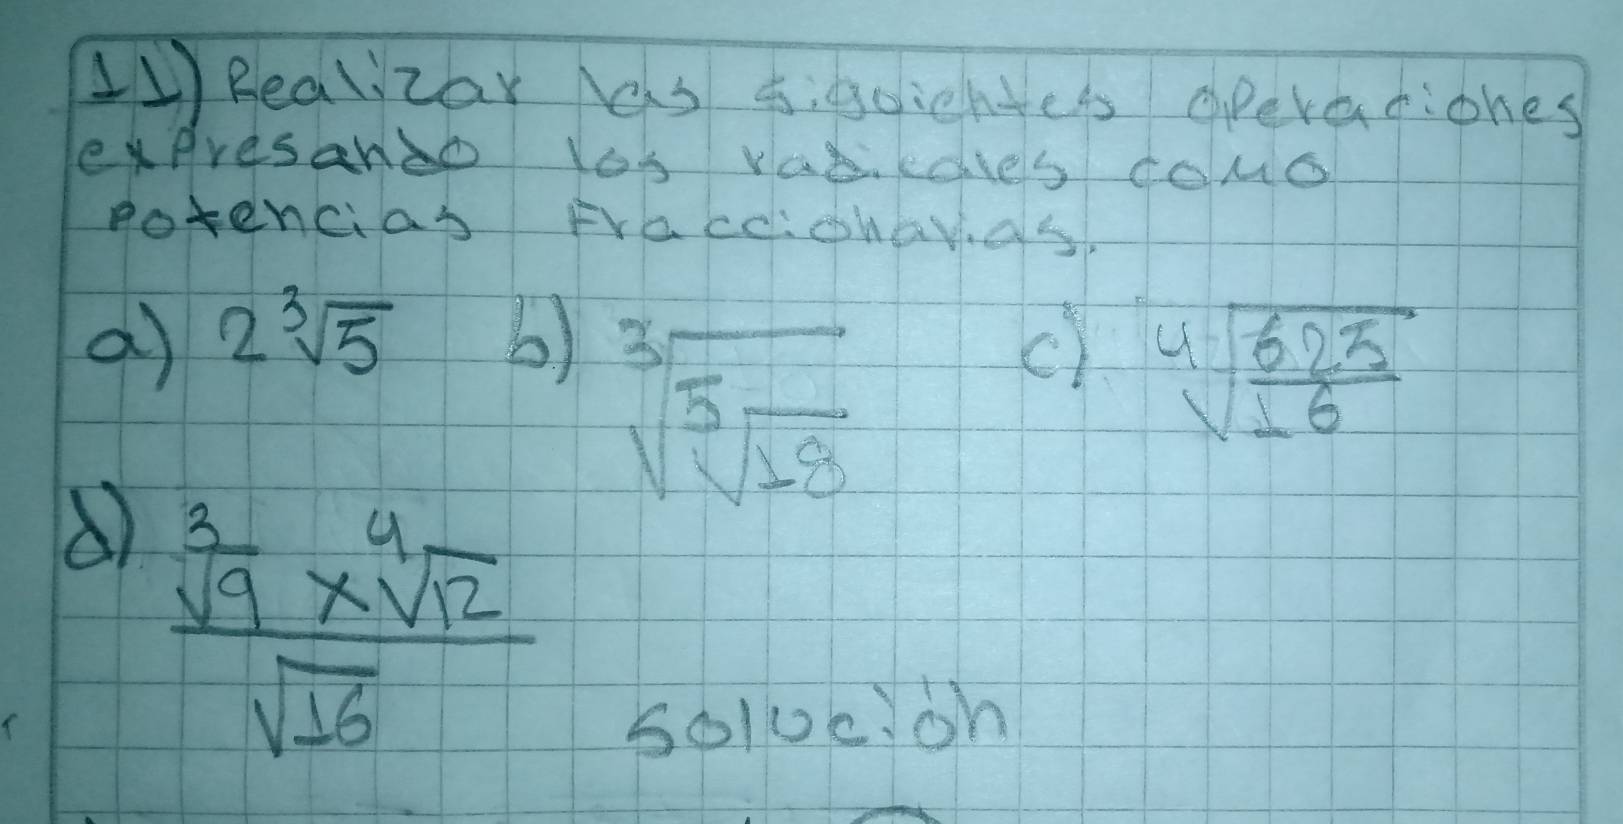 11) Realizar las siguientes operaciones
expresando los radicales como
potencias Fraccionarias.
a) 2∛5 b) ∛(⁵√18) c) ⁴√(625/16)
d) (∛9 x ⁴√12)/√16
solución